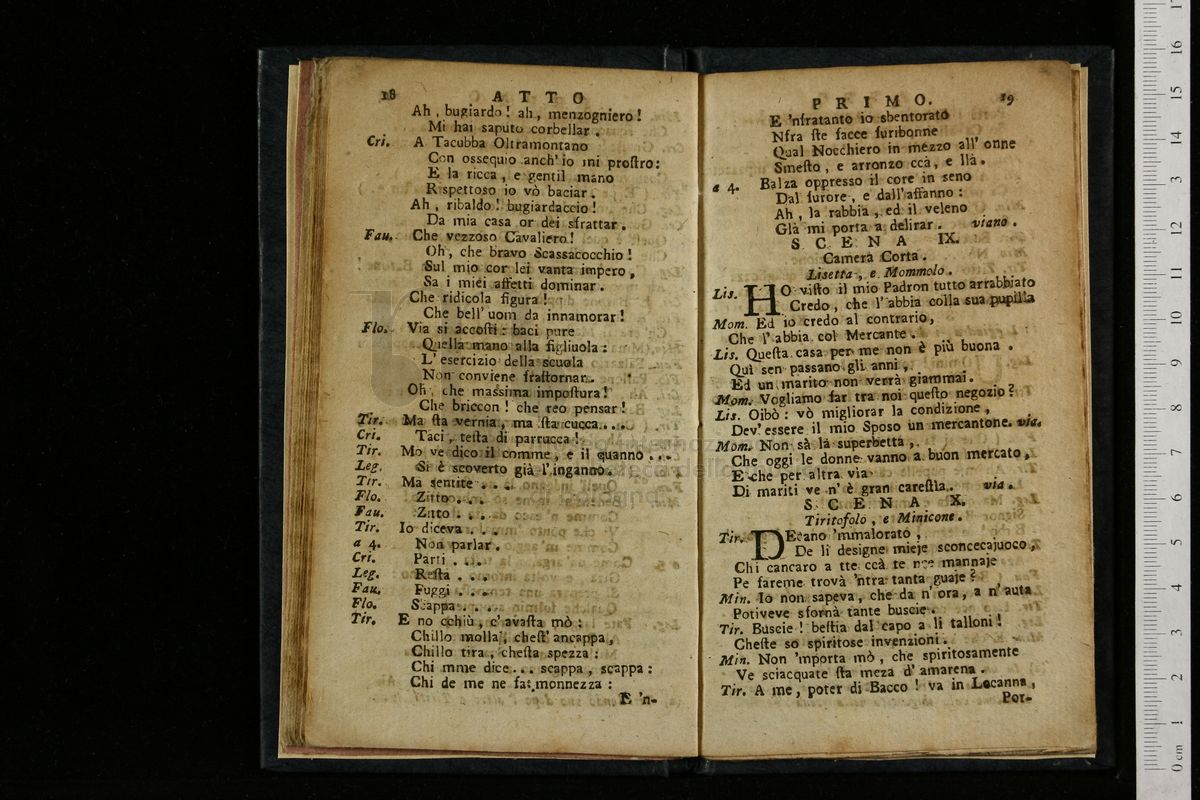 18 ATTO
Ah, bugiardo! ah, menzogniero!
Mi hai saputo corbellar.
Cri. A Tacubba Oltramontano
Con ossequio anch' io mi proſtro:
E la ricca, e gentil mano
Riſpettoso io vò baciar.
Ah, ribaldo! bugiardaccio!
Da mia casa or dei sfrattar.
Fau. Che vezzoso Cavaliero!
Oh, che bravo Scassacocchio!
Sul mio cor lei vanta impero,
Sa i miei affetti dominar.
Che ridicola figura!
Che bell' uom da innamorar!
Flo. Via si accoſti: baci pure
Quella mano alla figliuola:
L' esercizio della scuola
Non conviene fraſtornar.
Oh, che massima impoſtura!
Che briccon! che reo pensar!
Tir. Ma ſta vernia, ma ſta cucca....
Cri. Taci, teſta di parrucca!
Tir. Mo ve dico il comme, e il quanno ...
Leg. Si è scoverto già l' inganno.
Tir. Ma sentite ....
Flo. Zitto ....
Fau. Zitto ....
Tir. Io diceva ....
a 4. Non parlar.
Cri. Parti ....
Leg. Reſta ....
Fau. Fuggi ....
Flo. Scappa ....
Tir. E no cchiù, c' avaſta mò:
Chillo molla, cheſt' ancappa,
Chillo tira, cheſta spezza:
Chi mme dice... scappa, scappa:
Chi de me ne fa monnezza:
E 'n-
PRIMO. 19
E 'nfratanto io sbentorato
Nfra ſte facce furibonne
Qual Nocchiero in mezzo all' onne
Smeſto, e arronzo ccà, e llà.
a 4. Balza oppresso il core in seno
Dal furore, e dall' affanno:
Ah, la rabbia, ed il veleno
Già mi porta a delirar. viano.
SCENA IX.
Camera Corta.
Lisetta, e Mommolo.
Lis. HO viſto il mio Padron tutto arrabbiato
Credo, che l' abbia colla sua pupilla
Mom. Ed io credo al contrario,
Che l' abbia col Mercante.
Lis. Queſta casa per me non è più buona.
Quì sen passano gli anni,
Ed un marito non verrà giammai.
Mom. Vogliamo far tra noi queſto negozio?
Lis. Oibò: vò migliorar la condizione,
Dev' essere il mio Sposo un mercantone. via.
Mom. Non sà la superbetta,
Che oggi le donne vanno a buon mercato,
E che per altra via
Di mariti ve n' è gran careſtia. via.
SCENA X.
Tiritofolo, e Minicone.
Tir. DEcano 'mmalorato,
De li designe mieje sconcecajuoco,
Chi cancaro a tte ccà te nce mannaje
Pe fareme trovà 'ntra tanta guaje?
Min. Io non sapeva, che da n' ora, a n' auta
Potiveve sfornà tante buscie.
Tir. Buscie! beſtia dal capo a li talloni!
Cheſte so spiritose invenzioni.
Min. Non 'mporta mò, che spiritosamente
Ve sciacquate ſta meza d' amarena.
Tir. A me, poter di Bacco! va in Locanna,
Por-